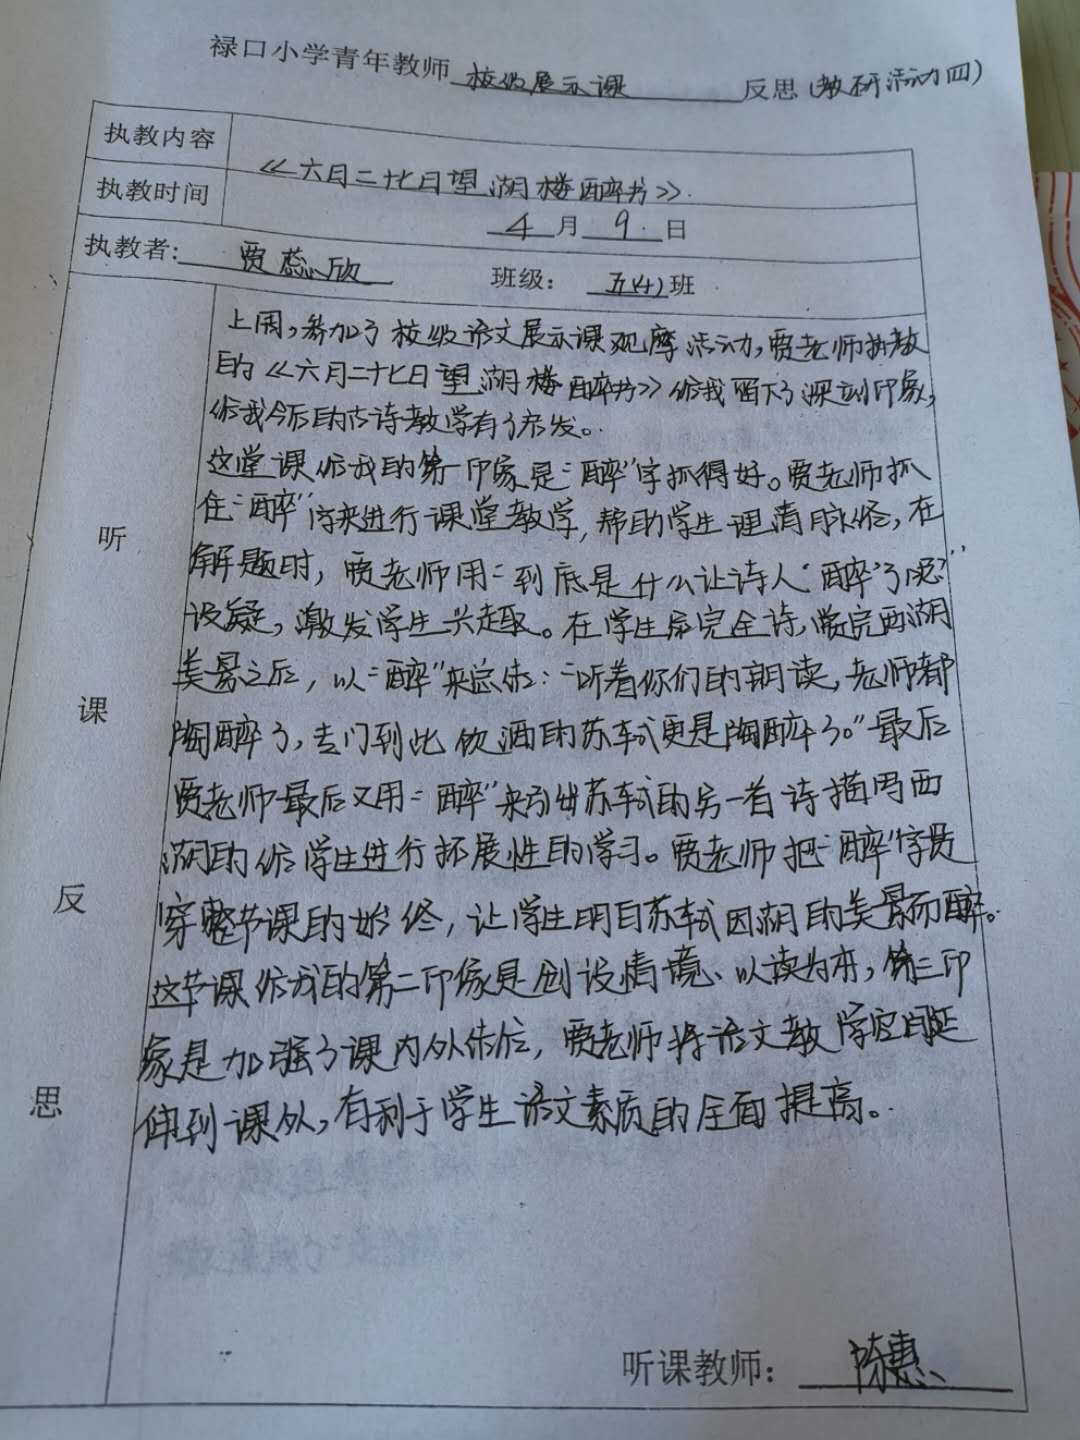 禄口小学青年教师 校级展示课 反思(教研活动四)
执教内容 《六月二十七日望湖楼醉书》.
执教时间 4月9日
执教者: 贾蕊欣 班级: 五(4)班
上周,参加了校级语文展示课观摩活动,贾老师执教
的《六月二十七日望湖楼醉书》给我留下了深刻印象,
给我今后的古诗教学有了启发。
这堂课给我的第一印象是“醉”字抓得好。贾老师抓
住“醉”字来进行课堂教学,帮助学生理清脉络,在
解题时,贾老师用“到底是什么让诗人‘醉’了呢?”
设疑,激发学生兴趣。在学生学完全诗,赏完西湖
美景之后,以“醉”来总结:“听着你们的朗读,老师都
陶醉了,专门到此饮酒的苏轼更是陶醉了。”最后
贾老师最后又用“醉”来引出苏轼的另一首诗描写西
湖的给学生进行拓展性的学习。贾老师把“醉”字贯
穿整节课的始终,让学生明白苏轼因湖的美景而醉。
这节课给我的第二印象是创设情境、以读为本,第三印
象是加强了课内外结合,贾老师将语文教学空间延
伸到课外,有利于学生语文素质的全面提高。
听
课
反
思
听课教师: 陈惠